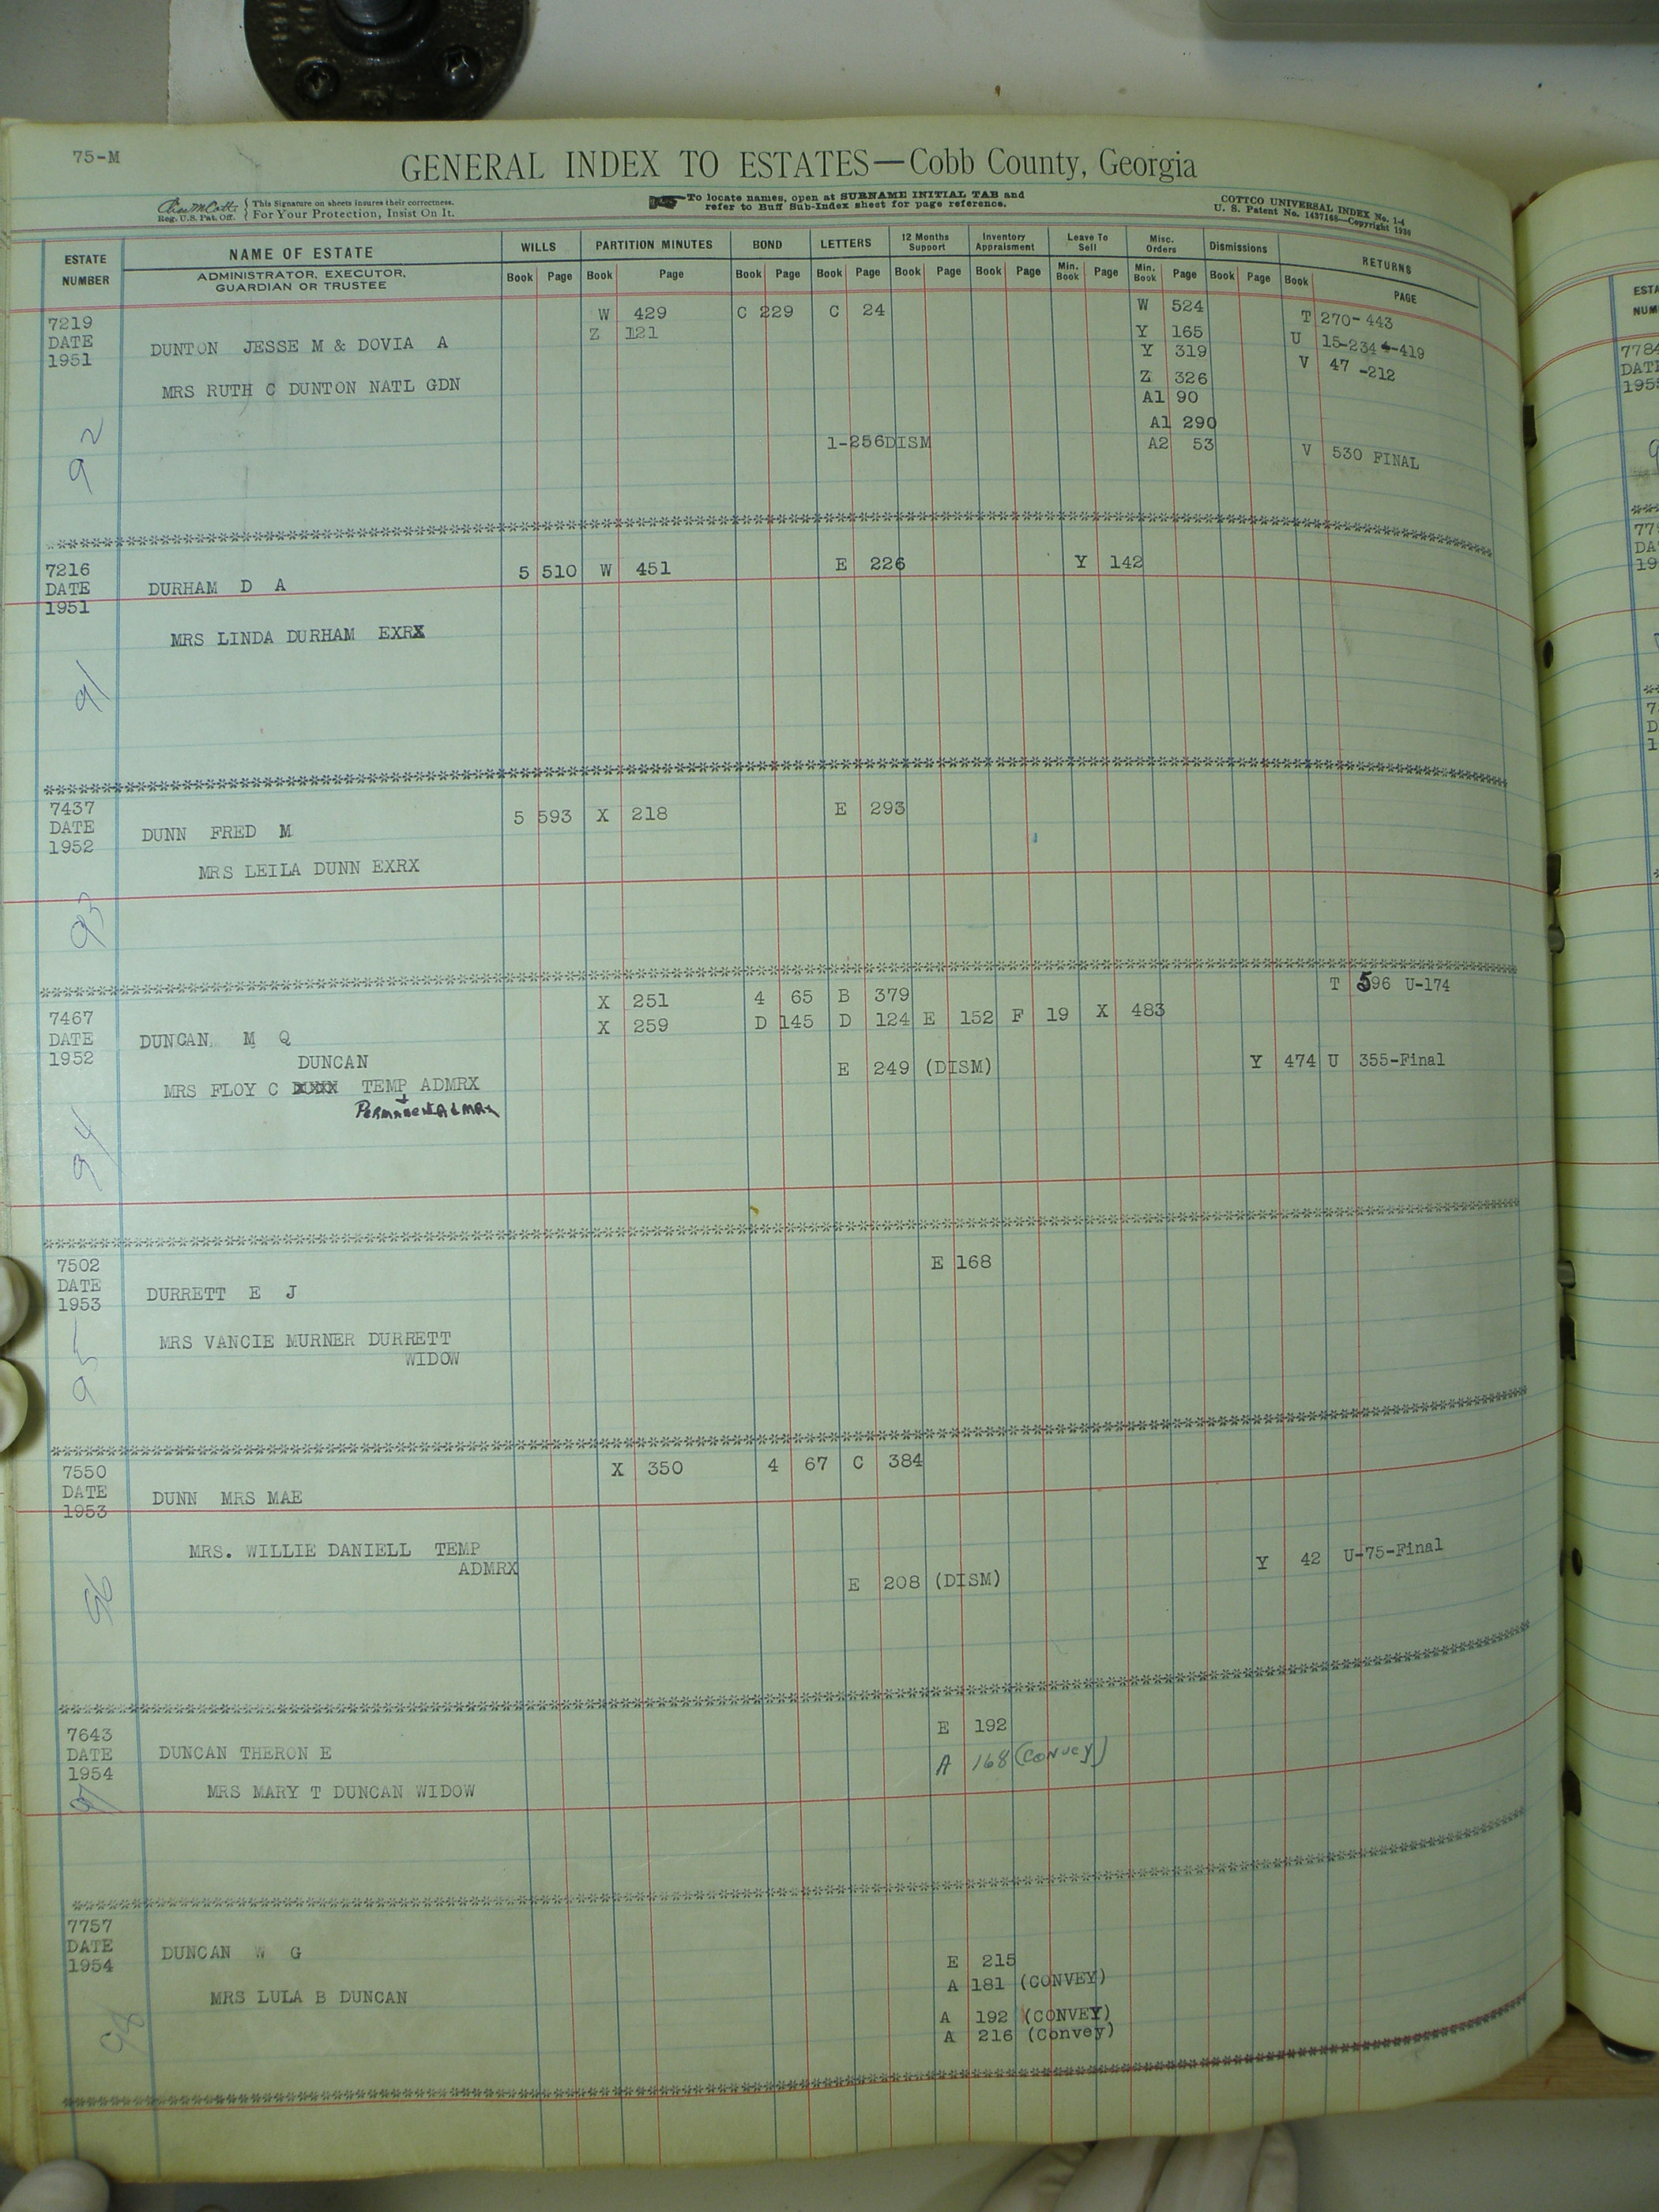 75-M
GENERAL INDEX TO ESTATES—Cobb County, Georgia
Reg. U.S. Pat. Off. { This Signature on sheets insures their correctness. For Your Protection, Insist On It.
To locate names, open at SURNAME INITIAL TAB and
refer to Buff Sub-Index sheet for page reference.
COTTCO UNIVERSAL INDEX No. 1-4
U. S. Patent No. 1437168—Copyright 1936
ESTATE NUMBER
NAME OF ESTATE
ADMINISTRATOR, EXECUTOR, GUARDIAN OR TRUSTEE
WILLS PARTITION MINUTES BOND LETTERS 12 Months Support Inventory Appraisment Leave To Sell Misc. Orders Dismissions RETURNS
Book Page Book Page Book Page Book Page Book Page Book Page Min. Book Page Min. Book Page Book Page Book PAGE
W 429 C 229 C 24 W 524 T 270-443
7219 Z 121 Y 165 U 15-234-419
DATE DUNTON JESSE M & DOVIA A Y 319 V 47 -212
1951
MRS RUTH C DUNTON NATL GDN Z 326
A1 90
A1 290
92 1-256DISM A2 53 V 530 FINAL
7216 5 510 W 451 E 226 Y 142
DATE DURHAM D A
1951
MRS LINDA DURHAM EXRX
91
7437 5 593 X 218 E 293
DATE DUNN FRED M
1952
MRS LEILA DUNN EXRX
93
X 251 4 65 B 379 T 596 U-174
7467 X 259 D 145 D 124 E 152 F 19 X 483
DATE DUNCAN M Q
1952 DUNCAN E 249 (DISM) Y 474 U 355-Final
MRS FLOY C TEMP ADMRX
Permanent Admrx
94
7502 E 168
DATE DURRETT E J
1953
MRS VANCIE MURNER DURRETT
WIDOW
95
7550 X 350 4 67 C 384
DATE DUNN MRS MAE
1953
MRS. WILLIE DANIELL TEMP
ADMRX Y 42 U-75-Final
E 208 (DISM)
96
7643 E 192
DATE DUNCAN THERON E A 168 (Convey)
1954
MRS MARY T DUNCAN WIDOW
97
7757
DATE DUNCAN W G E 215
1954 A 181 (CONVEY)
MRS LULA B DUNCAN A 192 (CONVEY)
A 216 (Convey)
98